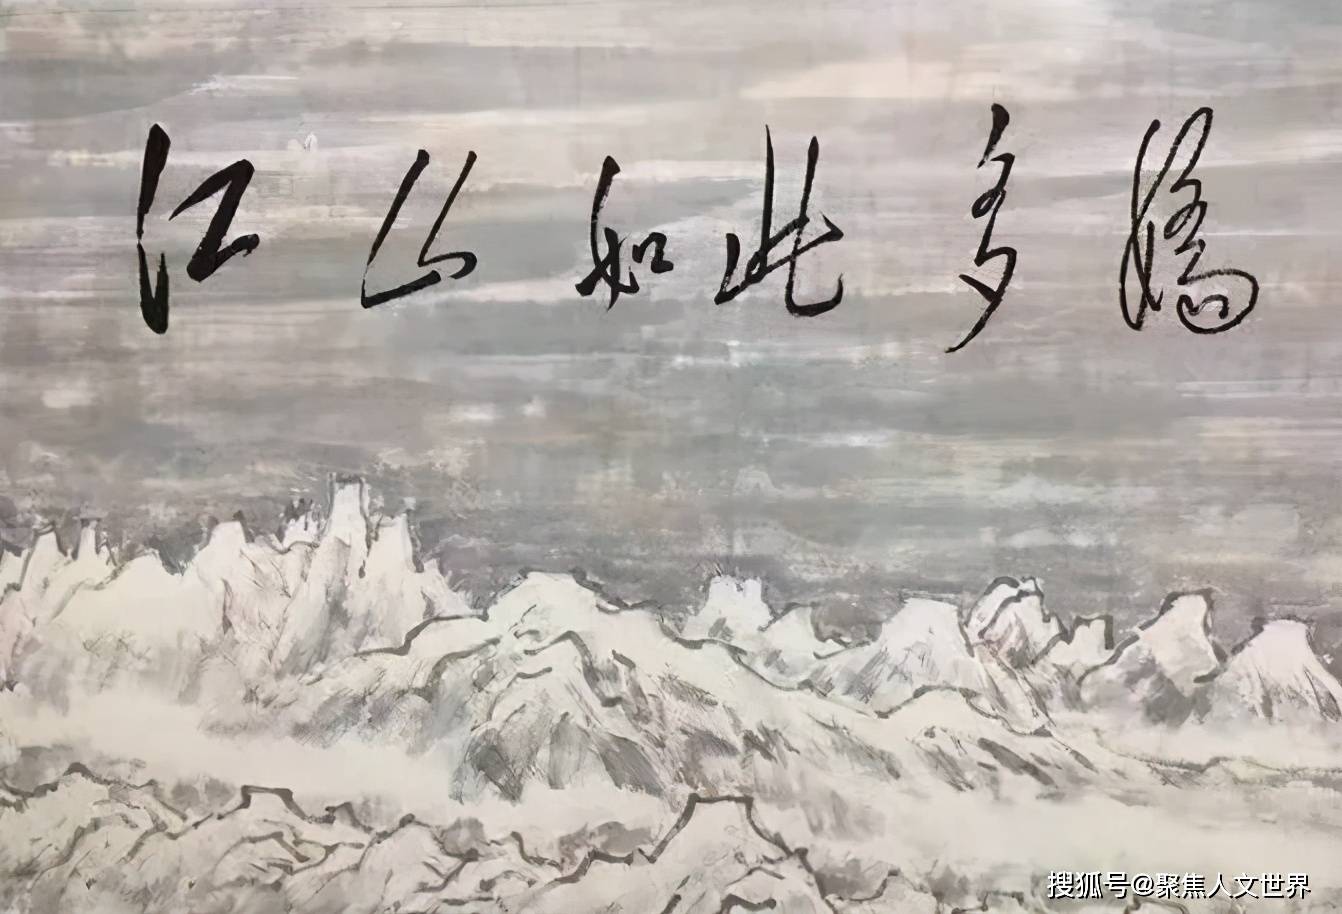 江山如此多嬌
搜狐号@聚焦人文世界